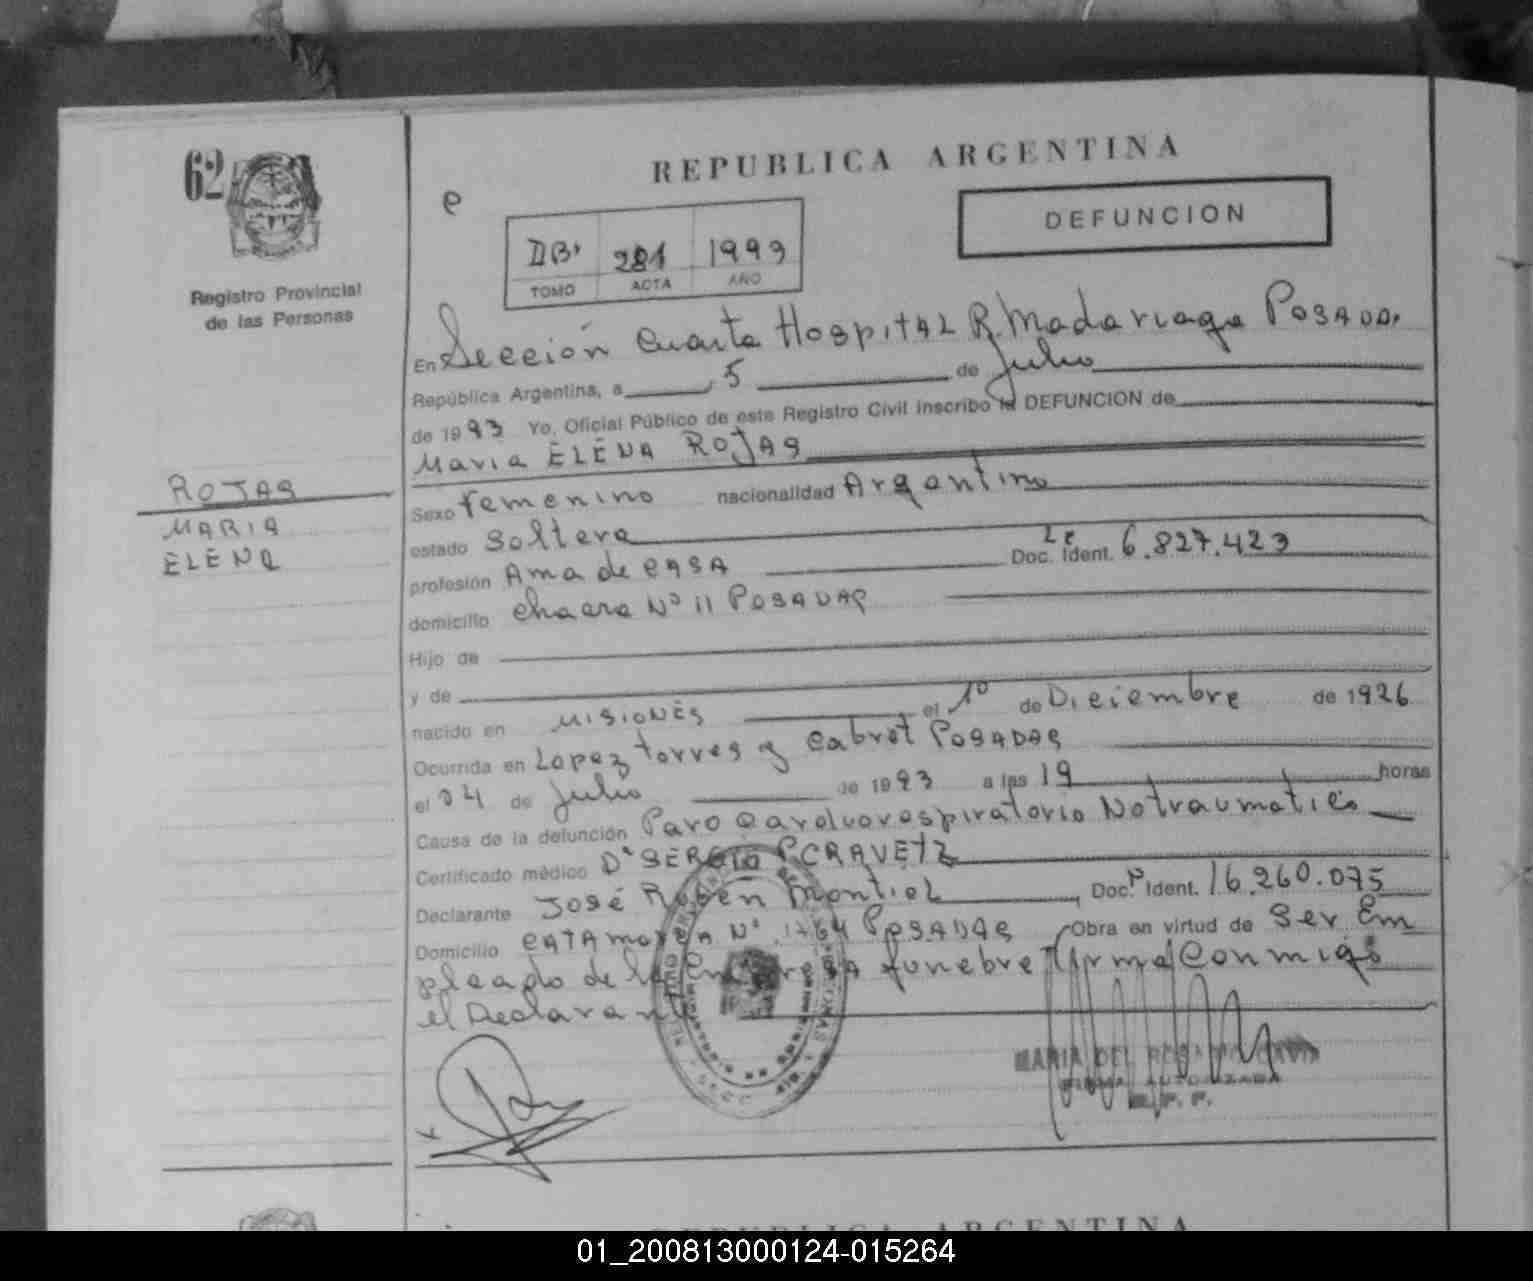 62
Registro Provincial
de las Personas
ROJAS
MARIA
ELENA
REPUBLICA ARGENTINA
e
DB' 281 1993
TOMO ACTA AÑO
DEFUNCION
En Sección Cuarta Hospital R. Madariaga Posada.
República Argentina, a 5 de Julio
de 1993 Yo, Oficial Público de este Registro Civil inscribo la DEFUNCION de
Maria ELENA ROJAS
Sexo femenino nacionalidad Argentina
estado Soltera
profesión Ama de casa Doc. Ident. 6.827.423
domicilio Chacra Nº 11 POSADAS
Hijo de
y de
nacido en MISIONES el 1º de Diciembre de 1926
Ocurrida en Lopez Torres y Cabret POSADAS
el 04 de Julio de 1993 a las 19 horas
Causa de la defunción Paro Cardiorespiratorio No traumatico
Certificado médico Dr SERGIO P CRAVETZ
Declarante José Ruben Montiel Doc. Ident. 16.260.075
Domicilio CATAMARCA Nº 1764 POSADAS Obra en virtud de Ser Em
pleado de la Empresa funebre firma Conmigo
el Declarante
MARIA DEL
FIRMA AUTORIZADA
REPUBLICA ARGENTINA
01_200813000124-015264